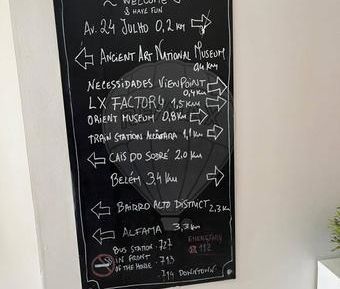 WELCOME
& HAVE FUN
Av. 24 JULHO 0,2 km
ANCIENT ART NATIONAL MUSEUM
0,4 km
NECESSIDADES VIEWPOINT
0,4 km
LX FACTORY 1,5 km
ORIENT MUSEUM 0,8 km
TRAIN STATION ALCÂNTARA 1,1 km
CAIS DO SODRÉ 2.0 km
BELÉM 3,4 km
BAIRRO ALTO DISTRICT 2,3 km
ALFAMA 3,3 km
BUS STATION - 727
EMERGENCY
112
IN FRONT - 713
OF THE HOUSE
- 714 DOWNTOWN